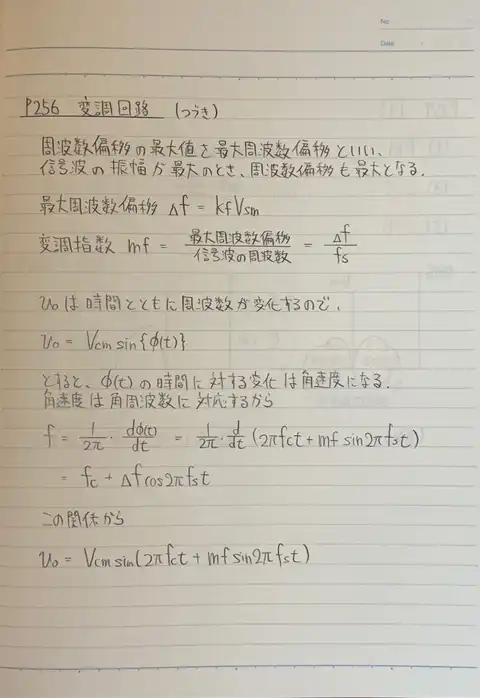 No
Date
P256 変調回路 (つづき)
周波数偏移の最大値を最大周波数偏移といい、
信号波の振幅が最大のとき、周波数偏移も最大となる.
最大周波数偏移 Δf = kf Vsm
変調指数 mf = 最大周波数偏移/信号波の周波数 = Δf/fs
υo は時間とともに周波数が変化するので、
υo = Vcm sin{φ(t)}
とすると、φ(t) の時間に対する変化は角速度になる.
角速度は角周波数に対応するから
f = 1/2π · dφ(t)/dt = 1/2π · d/dt (2πfct + mf sin2πfst)
= fc + Δf cos2πfst
この関係から
υo = Vcm sin(2πfct + mf sin2πfst)